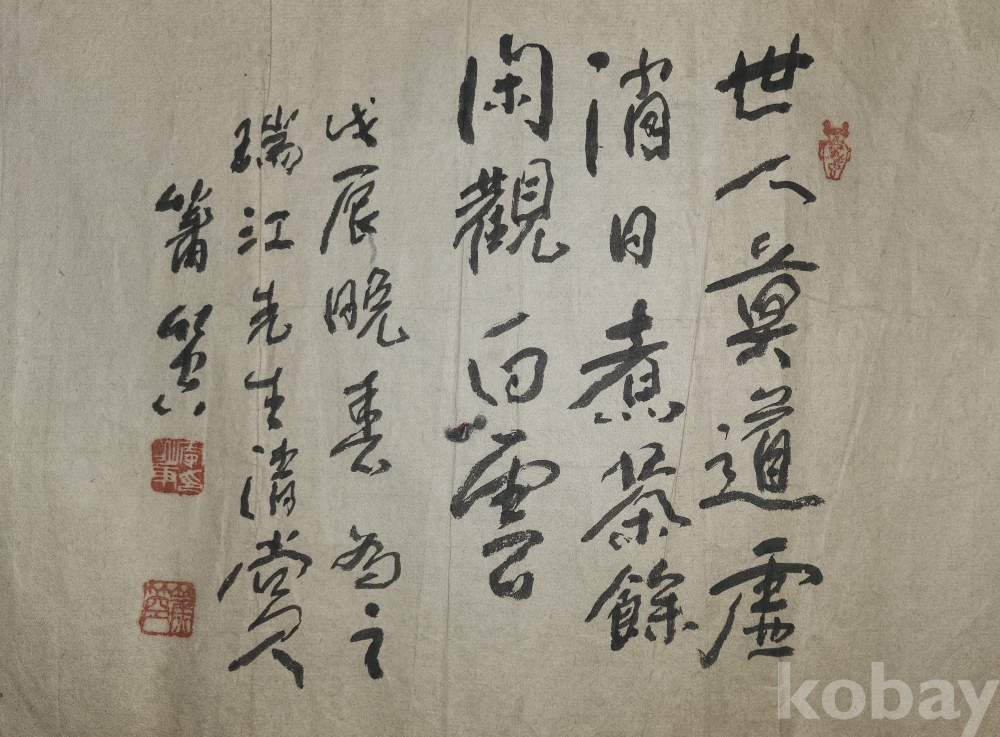 世人莫道虛
消日煮茶餘
閑觀白雲
戊辰晩春為之
瑞江先生清賞
kobay